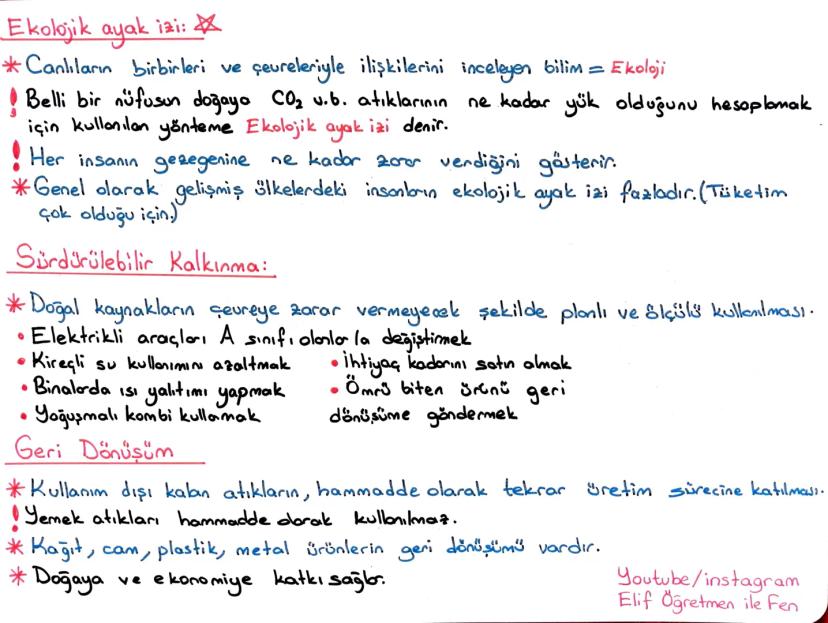 Ekolojik ayak izi:
* Canlıların birbirleri ve çevreleriyle ilişkilerini inceleyen bilim = Ekoloji
! Belli bir nüfusun doğaya CO₂ v.b. atıklarının ne kadar yük olduğunu hesaplamak
için kullanılan yönteme Ekolojik ayak izi denir.
! Her insanın gezegenine ne kadar zarar verdiğini gösterir.
* Genel olarak gelişmiş ülkelerdeki insanların ekolojik ayak izi fazladır. (Tüketim
çok olduğu için.)
Sürdürülebilir Kalkınma:
* Doğal kaynakların çevreye zarar vermeyecek şekilde planlı ve ölçülü kullanılması.
• Elektrikli araçları A sınıfı olanlarla değiştirmek
• Kireçli su kullanımını azaltmak • İhtiyaç kadarını satın almak
• Binalarda ısı yalıtımı yapmak • Ömrü biten ürünü geri
• Yoğuşmalı kombi kullanmak dönüşüme göndermek
Geri Dönüşüm
* Kullanım dışı kalan atıkların, hammadde olarak tekrar üretim sürecine katılması.
! Yemek atıkları hammadde olarak kullanılmaz.
* Kağıt, cam, plastik, metal ürünlerin geri dönüşümü vardır.
* Doğaya ve ekonomiye katkı sağlar.
Youtube/instagram
Elif Öğretmen ile Fen